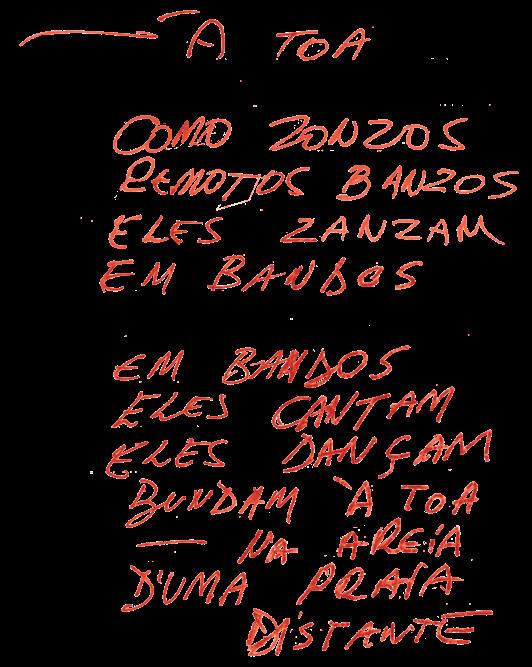 — À TOA
COMO ZONZOS
REMOTOS BANZOS
ELES ZANZAM
EM BANDOS
EM BANDOS
ELES CANTAM
ELES DANÇAM
BUNDAM À TOA
— NA AREIA
D'UMA PRAIA
DISTANTE